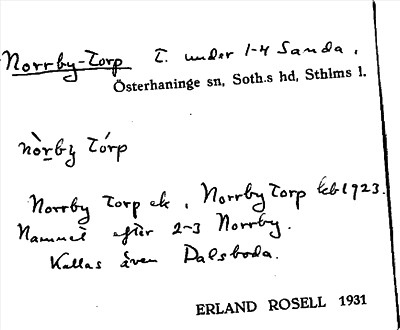 Norrby-Torp T. under 1-4 Sanda.
Österhaninge sn, Soth.s hd, Sthlms l.
nòrby tórp
Norrby Torp ek, Norrby Torp Kb 1923.
Namnet efter 2-3 Norrby.
Kallas även Dalsboda.
ERLAND ROSELL 1931